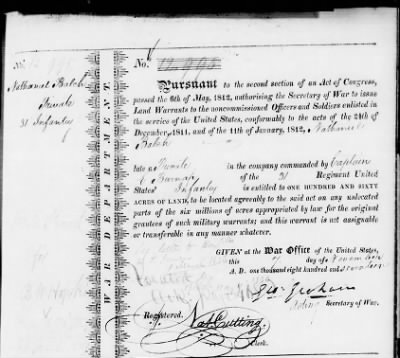 No. 12,995
Nathaniel Balch
Private
31 Infantry
WAR DEPARTMENT.
No. 12,995
Pursuant to the second section of an Act of Congress,
passed the 6th of May, 1812, authorising the Secretary of War to issue
Land Warrants to the noncommissioned Officers and Soldiers enlisted in
the service of the United States, conformably to the acts of the 24th of
December, 1811, and of the 11th of January, 1812, Nathaniel
Balch
late a Private in the company commanded by Captain
Burnap of the 31 Regiment United
States' Infantry is entitled to ONE HUNDRED AND SIXTY
ACRES OF LAND, to be located agreeably to the said act on any unlocated
parts of the six millions of acres appropriated by law for the original
grantees of such military warrants; and this warrant is not assignable
or transferable in any manner whatever.
GIVEN at the War Office of the United States,
this day of November
A. D. one thousand eight hundred and seventeen
Geo: Graham
Acting Secretary of War.
Registered.
Nat Cutting.
Clerk.